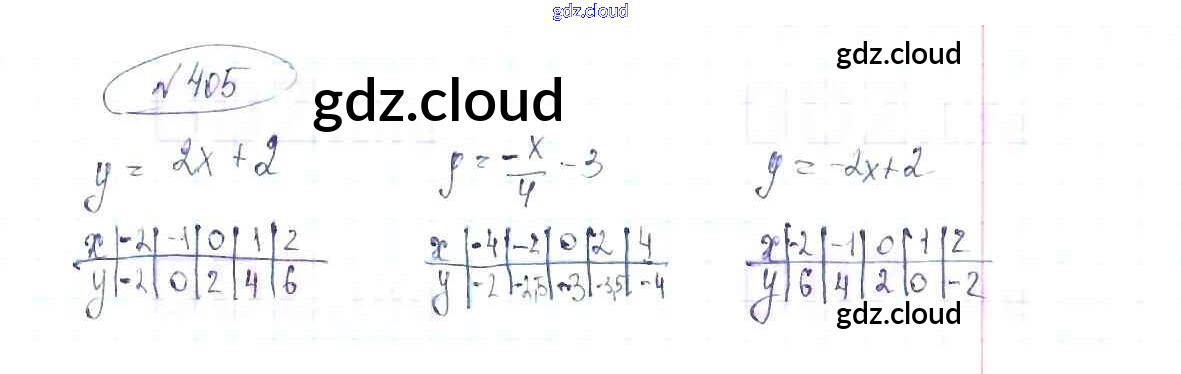 gdz.cloud
gdz.cloud
№ 405
gdz.cloud
y = 2x + 2
y = -x/4 - 3
y = -2x+2
x | -2 | -1 | 0 | 1 | 2
y | -2 | 0 | 2 | 4 | 6
x | -4 | -2 | 0 | 2 | 4
y | -2 | -2,5 | -3 | -3,5 | -4
x | -2 | -1 | 0 | 1 | 2
y | 6 | 4 | 2 | 0 | -2
gdz.cloud